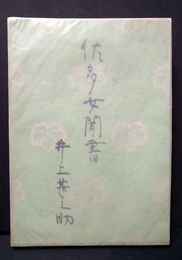 佐多女聞書
井上甚之助